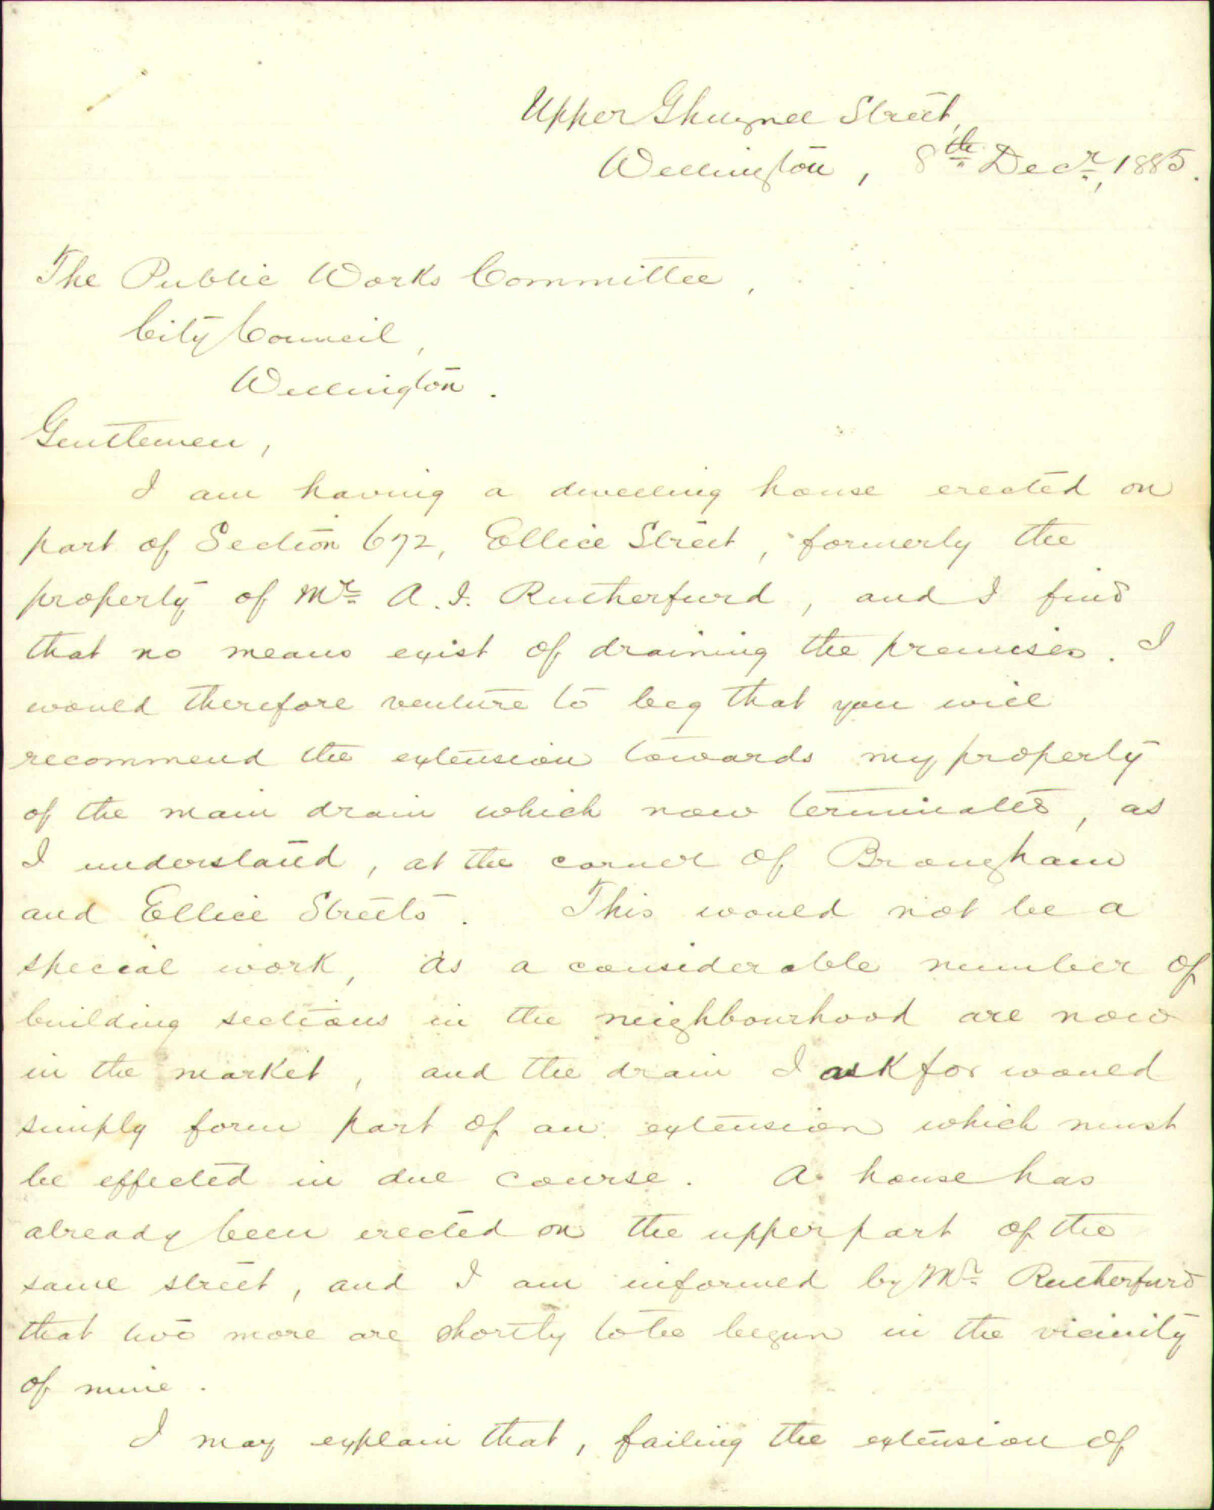 Upper Ghuznee Street,
Wellington, 8th Decr, 1885.
The Public Works Committee,
City Council,
Wellington.
Gentlemen,
I am having a dwelling house erected on
part of Section 672, Ellice Street, formerly the
property of Mr A. I. Rutherfurd, and I find
that no means exist of draining the premises. I
would therefore venture to beg that you will
recommend the extension towards my property
of the main drain which now terminates, as
I understand, at the corner of Brougham
and Ellice Streets. This would not be a
special work, as a considerable number of
building sections in the neighbourhood are now
in the market, and the drain I ask for would
simply form part of an extension which must
be effected in due course. A house has
already been erected on the upper part of the
same street, and I am informed by Mr Rutherfurd
that two more are shortly to be begun in the vicinity
of mine.
I may explain that, failing the extension of